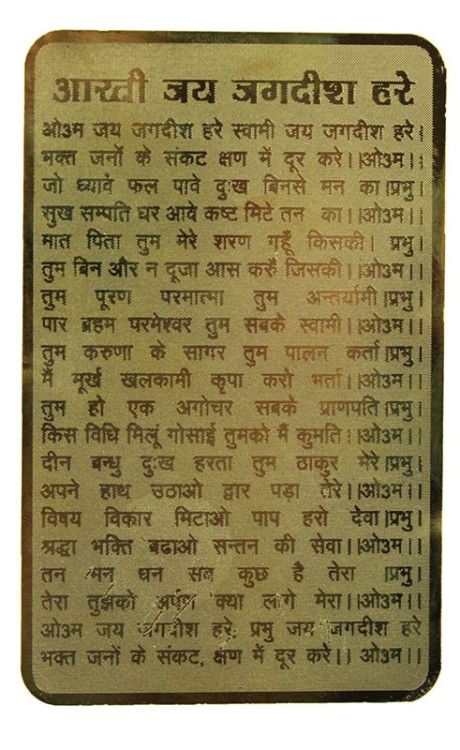 आरती जय जगदीश हरे
ओ३म जय जगदीश हरे स्वामी जय जगदीश हरे।
भक्त जनों के संकट क्षण में दूर करे।।ओ३म।।
जो ध्यावे फल पावे दुःख बिनसे मन का।प्रभु।
सुख सम्पति घर आवे कष्ट मिटे तन का।।ओ३म।।
मात पिता तुम मेरे शरण गहूँ किसकी। प्रभु।
तुम बिन और न दूजा आस करुँ जिसकी।।ओ३म।।
तुम पूरण परमात्मा तुम अन्तर्यामी।प्रभु।
पार ब्रहम परमेश्वर तुम सबके स्वामी।।ओ३म।।
तुम करुणा के सागर तुम पालन कर्ता।प्रभु।
मैं मूर्ख खलकामी कृपा करो भर्ता।।ओ३म।।
तुम हो एक अगोचर सबके प्राणपति।प्रभु।
किस विधि मिलूं गोसाई तुमको मैं कुमति।।ओ३म।।
दीन बन्धु दुःख हरता तुम ठाकुर मेरे।प्रभु।
अपने हाथ उठाओ द्वार पड़ा तेरे।।ओ३म।।
विषय विकार मिटाओ पाप हरो देवा।प्रभु।
श्रद्धा भक्ति बढाओ सन्तन की सेवा।।ओ३म।।
तन मन धन सब कुछ है तेरा ।प्रभु।
तेरा तुझको अर्पण क्या लागे मेरा।।ओ३म।।
ओ३म जय जगदीश हरे, प्रभु जय जगदीश हरे
भक्त जनों के संकट, क्षण में दूर करे।। ओ३म।।